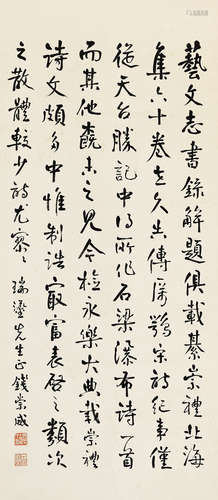 藝文志書錄解題俱載綦崇禮北海
集六十卷立久亡傳厲鶚宋詩紀事僅
從天台勝記中得所作石梁瀑布詩一首
而其他槩未之見今檢永樂大典載崇禮
詩文頗多中惟制誥最富表啓之類次
之散體較少詩尤寥寥
瑞鎏先生正 錢崇威